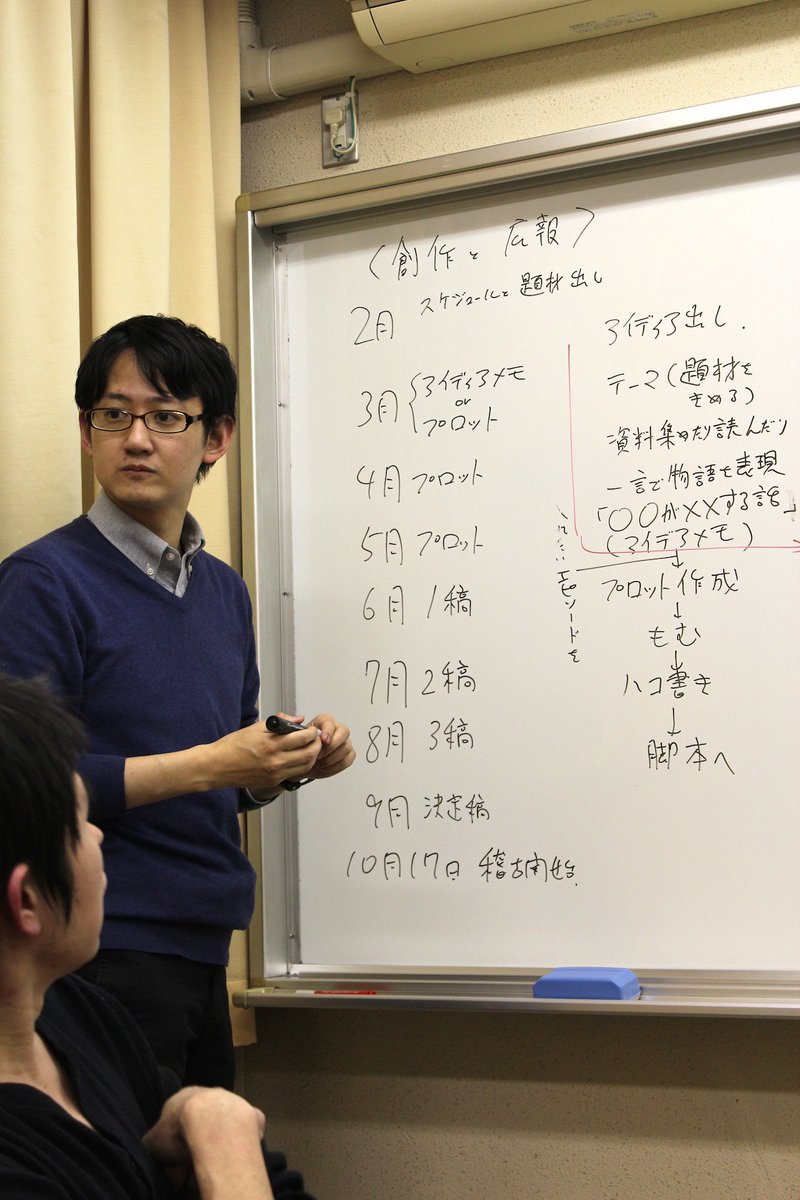 〈創作と広報〉
2月 スケジュールと題材出し
3月 アイディアメモ
or
プロット
4月 プロット
5月 プロット
6月 1稿
7月 2稿
8月 3稿
9月 決定稿
10月17日 稽古開始
アイディア出し.
テーマ(題材を
きめる)
資料集めたり読んだり
一言で物語を表現
「〇〇が××する話」
(アイデアメモ)
↓
プロット作成
↓
もむ
↓
ハコ書き
↓
脚本へ
いれたいエピソードを